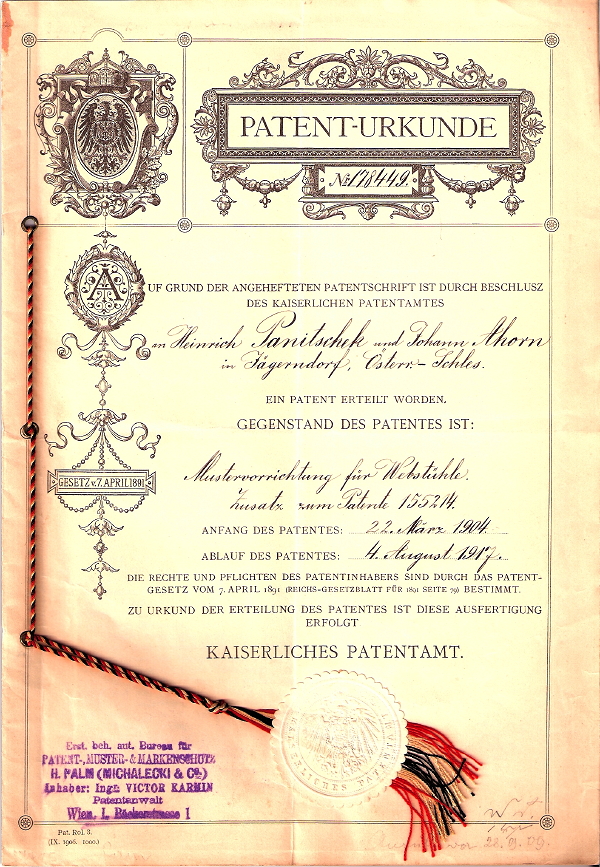 PATENT-URKUNDE
No 178449.
AUF GRUND DER ANGEHEFTETEN PATENTSCHRIFT IST DURCH BESCHLUSZ
DES KAISERLICHEN PATENTAMTES
an Heinrich Panitschek und Johann Ahorn
in Jägerndorf, Österr.-Schles.
EIN PATENT ERTEILT WORDEN.
GEGENSTAND DES PATENTES IST:
GESETZ v. 7. APRIL 1891
Mustervorrichtung für Webstühle.
Zusatz zum Patente 155214.
ANFANG DES PATENTES: 22. März 1904.
ABLAUF DES PATENTES: 4. August 1917.
DIE RECHTE UND PFLICHTEN DES PATENTINHABERS SIND DURCH DAS PATENT-
GESETZ VOM 7. APRIL 1891 (REICHS-GESETZBLATT FÜR 1891 SEITE 79) BESTIMMT.
ZU URKUND DER ERTEILUNG DES PATENTES IST DIESE AUSFERTIGUNG
ERFOLGT
KAISERLICHES PATENTAMT.
Erst. beh. aut. Bureau für
PATENT-, MUSTER- & MARKENSCHUTZ
H. PALM (MICHALECKI & Co.)
Inhaber: Ingr. VICTOR KARMIN
Patentanwalt
Wien, I., Bäckerstrasse 1
Pat. Rol. 3.
(IX. 1906. 1000.)